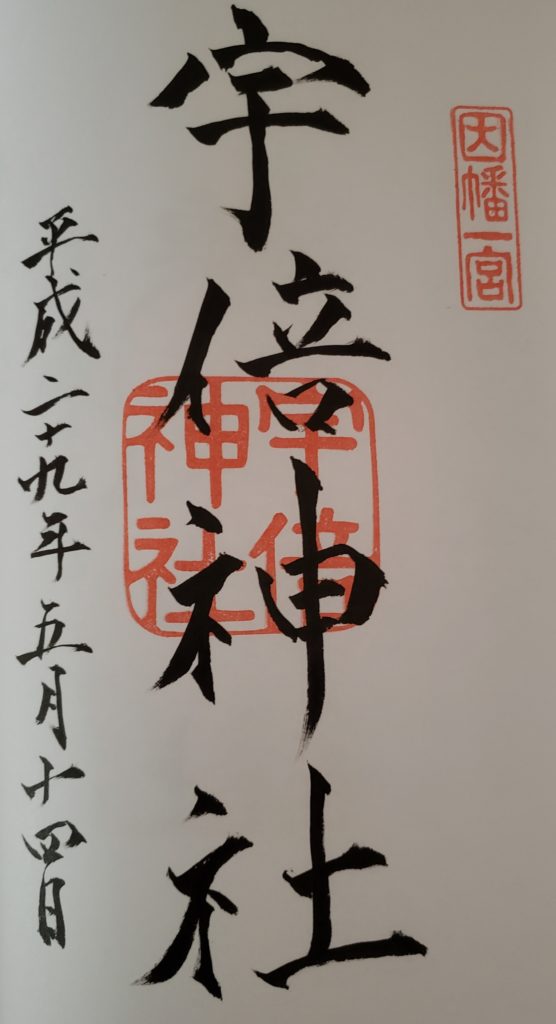 因幡一宮
宇倍神社
宇倍
神社
平成二十九年五月十四日